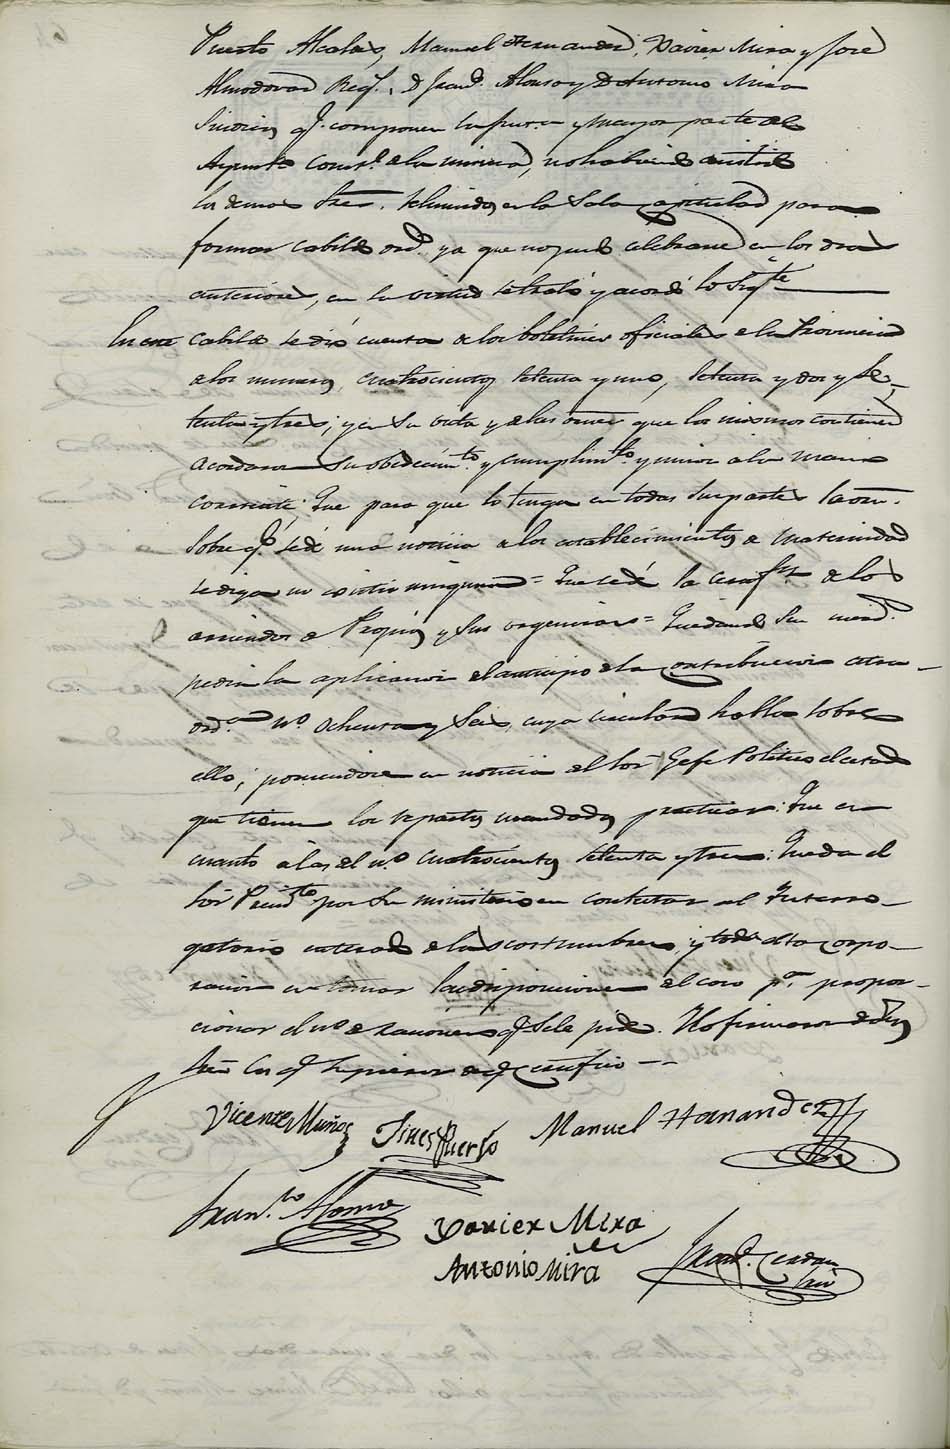 Puerto Alcaldes, Manuel Hernandez, Xavier Mira y José
Almodovar Reg.s, D Fran.co Alonso y D Antonio Mira
Sindicos q.e componen la primera y mayor parte del
Ayunt.to Const.l de la misma, no habiendo asistido
los demas Sres. reunidos en la Sala Capitular para
formar Cabildo ord.o ya que no pudo celebrarse en los dias
anteriores, en la virtud se trató y acordó lo Sig.te
En este Cabildo se dió cuenta de los boletines oficiales de la Provincia
de los numeros cuatrocientos setenta y uno, setenta y dos y Se-
tenta y tres; y en su vista y de las ordenes que los mismos contienen
acordaron su obedecim.to y cumplim.to y unir a la mano
corriente: Que para que lo tenga en todas sus partes la orn.
sobre q.e se dé una noticia de los establecimientos de Maternidad
se diga no existir ninguno = Que se dé la de los
arriendos de Propios y sus urgencias = Quedando Sus merd.s
pedir la aplicacion del anticipo de la Contribucion estra-
ord.a n.o ochenta y Seis, cuya circular habla sobre
ello; poniendose en noticia del Sor. Gefe Politico el estado
que tienen los repartos mandados practicar: Que en
cuanto a las del n.o cuatrocientos setenta y tres: Queda el
Sor Presid.te por su ministerio en contestar al Interro-
gatorio enterado de las costumbres; y toda esta corpo-
racion en tomar las disposiciones del caso p.a propor-
cionar el n.o de raciones q.e se le pide. Y lo firmaron dhos
Sres los q.e supieron de q.e certifico
Vicente Muñoz Gines Puerto Manuel Hernandez
Fran.co Alonso
Xavier Mira
Antonio Mira
Fran.co Cerdan
Srio